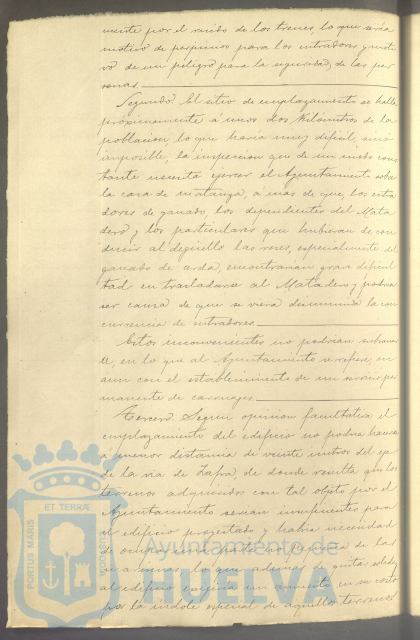 mente por el ruido de los trenes, lo que sería
motivo de perjuicios para los entradores y moti
vo de un peligro para la seguridad de las per
sonas.
Segundo. El sitio de emplazamiento se halla
próximamente á unos dos kilómetros de la
población, lo que haría muy difícil, sino
imposible, la inspección que de un modo cons
tante necesita ejercer el Ayuntamiento sobre
la casa de matanza, á mas de que, los entra
dores de ganado, los dependientes del Mata
dero y los particulares que hubieran de con
ducir al degüello las reses, especialmente del
ganado de cerda, encontrarian gran dificul
tad en trasladarse al Matadero y podria
ser causa de que se viera disminuida la con
currencia de entradores.
Estos inconvenientes no podrian subsanar
se, en lo que al Ayuntamiento se refiere, ni
aun con el establecimiento de un servicio per
manente de carruajes.
Tercero. Segun opinion facultativa el
emplazamiento del edificio no podria hacerse
á menor distancia de veinte metros del eje
de la via de Zafra, de donde resulta que los
terrenos adquiridos con tal objeto por el
Ayuntamiento serian insuficientes para
el edificio proyectado y habria necesidad
de ocupar una parte no pequeña de las
lo que además de quitar solidez
al edificio exigiria un aumento en su costo
por la índole especial de aquellos terrenos
PORTUS MARIS
ET TERRÆ
CUSTODIA
Ayuntamiento de
HUELVA